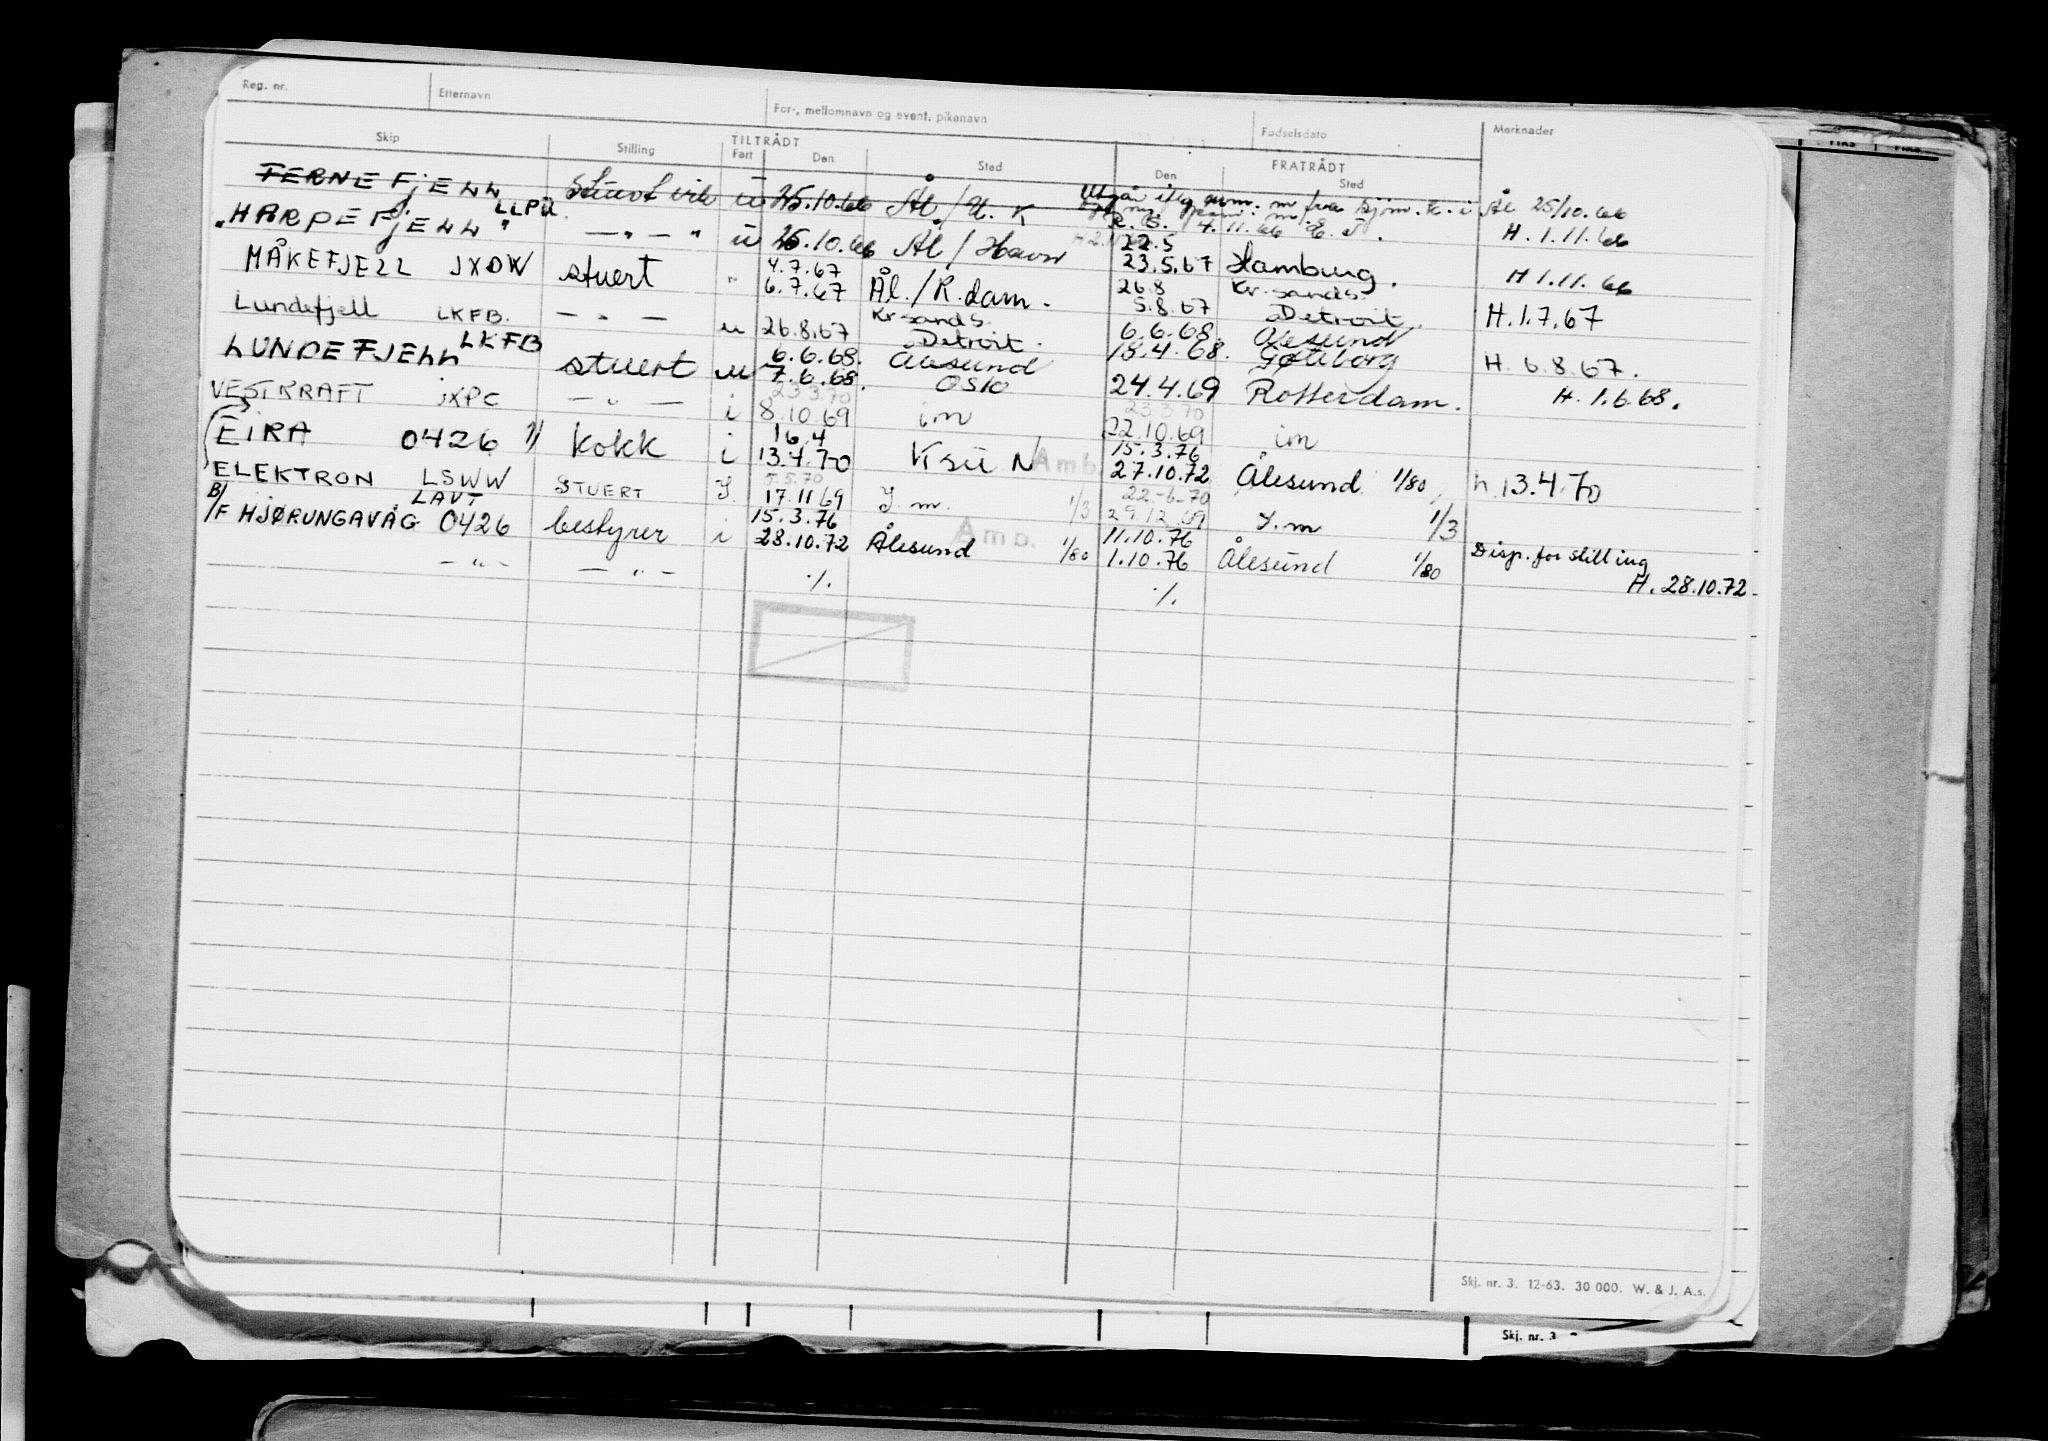 Reg. nr. Etternavn For-, mellomnavn og event. pikenavn Fødselsdato Merknader
Skip Stilling TILTRÅDT Fart Den Sted FRATRÅDT Den Sted
FERNEFJELL Stuert vik u 25.10.66 Ål./U.K Utgår iflg. m fra sjøm.k. i Ål 25/10.66
4.11.66
"HARPEFJELL" LLPQ — " — " u 25.10.66 Ål / Havn 22.5 23.5.67 Hamburg. H. 1.11.66
MÅKEFJELL JXDW stuert " 4.7.67 6.7.67 Ål./R.dam. 26.8 5.8.67 Kr.sands. Detroit. H 1.11.66
Lundefjell LKFB. — " — u 26.8.67 Kr.sands. Detroit. 6.6.68. 18.4.68. Ålesund Gøteborg H.1.7.67
LUNDEFJELL LKFB stuert u 6.6.68. 7.6.68. Ålesund Oslo 24.4.69 Rotterdam. H. 6.8.67.
VESTKRAFT JXPC — " — i 23.3.70 8.10.69 im 23.3.70 22.10.69 im H. 1.6.68.
EIRA 0426 kokk i 16.4 13.4.70 Ksu N Amb. 15.3.76 27.10.72 Ålesund 1/80 h. 13.4.70
ELEKTRON LSWW LAVT STUERT I. 5.5.70 17.11.69 I.m. 1/3 22.6.70 29.12.69 I.m 1/3
B/F HJØRUNGAVÅG 0426 bestyrer i 15.3.76 28.10.72 Ålesund Amb. 1/80 11.10.76 1.10.76 Ålesund 1/80 Disp. for stilling
— " — — " — ./. ./. H. 28.10.72.
Skj. nr. 3. 12-63. 30 000. W. & J. A.s.
Skj. nr. 3